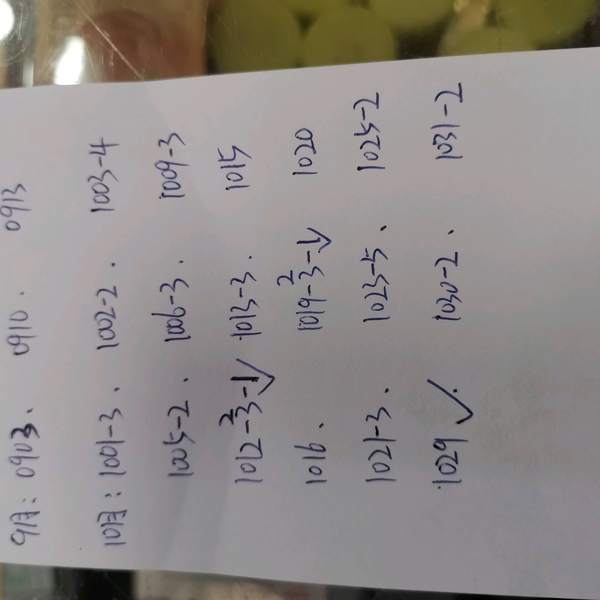 9月: 0903、 0910、 0913
10月: 1001-3、 1002-2、 1003-4
1005-2、 1006-3、 1009-3
1012-3-1✓ 2 1013-3、 1015
1016、 1019-3-1✓ 2 1020
1021-3、 1023-5、 1025-2
1029 ✓、 1030-2、 1031-2